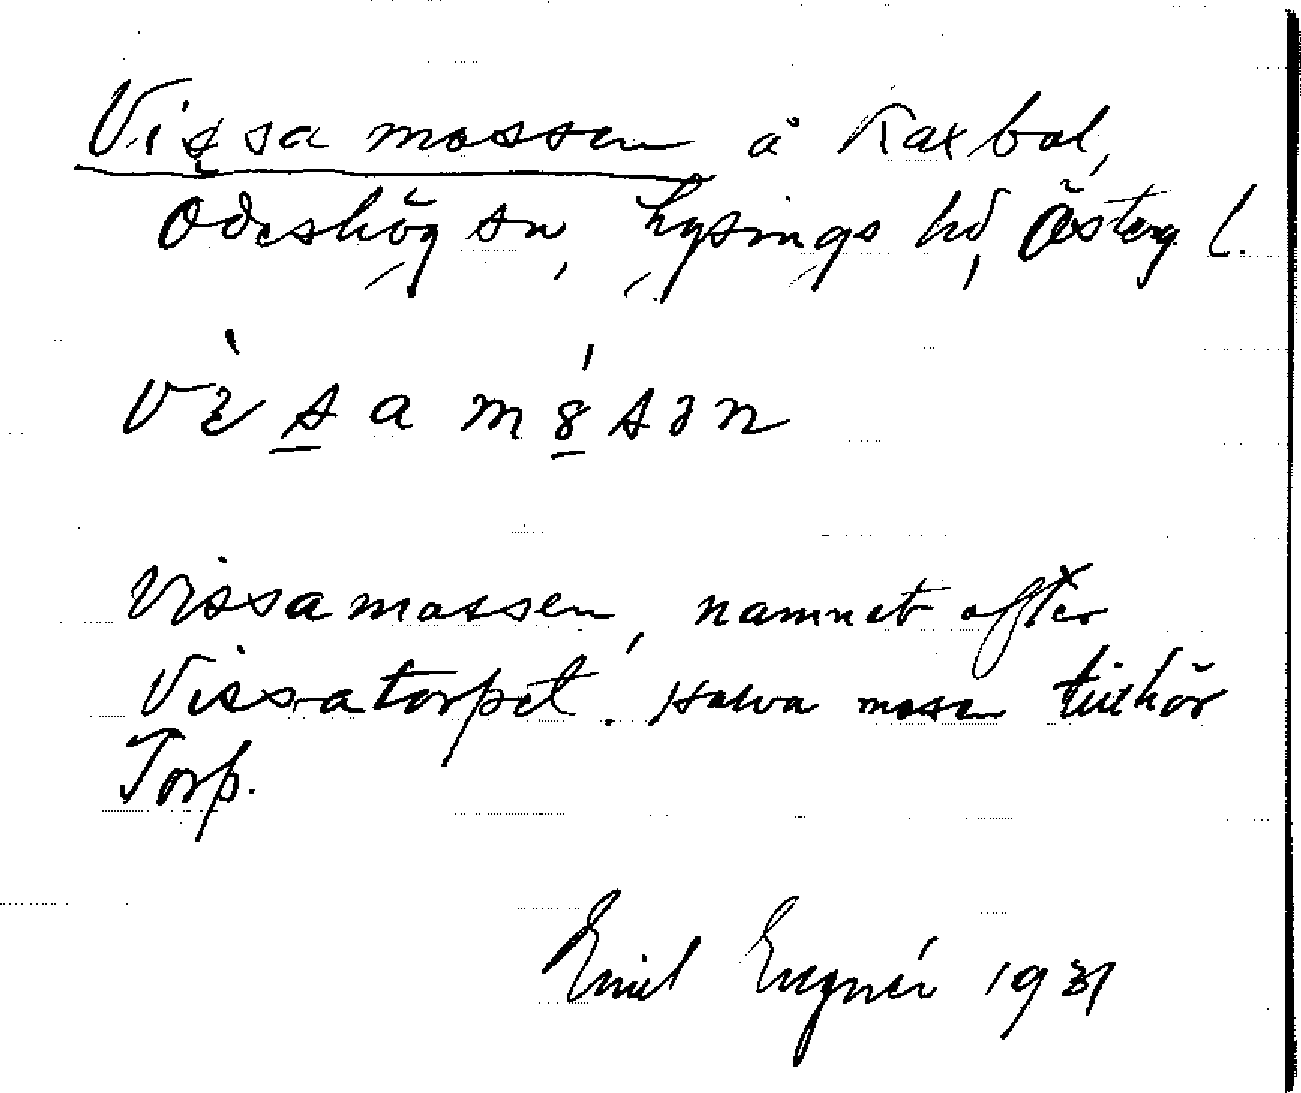 Vissa mossen å Kaxbol,
Ödeshög sn, Lysings hd, Österg l.
Vissamossen, namnet efter
Vissatorpet. Halva mosen tillhör
Torp.
Emil Engnér 1931